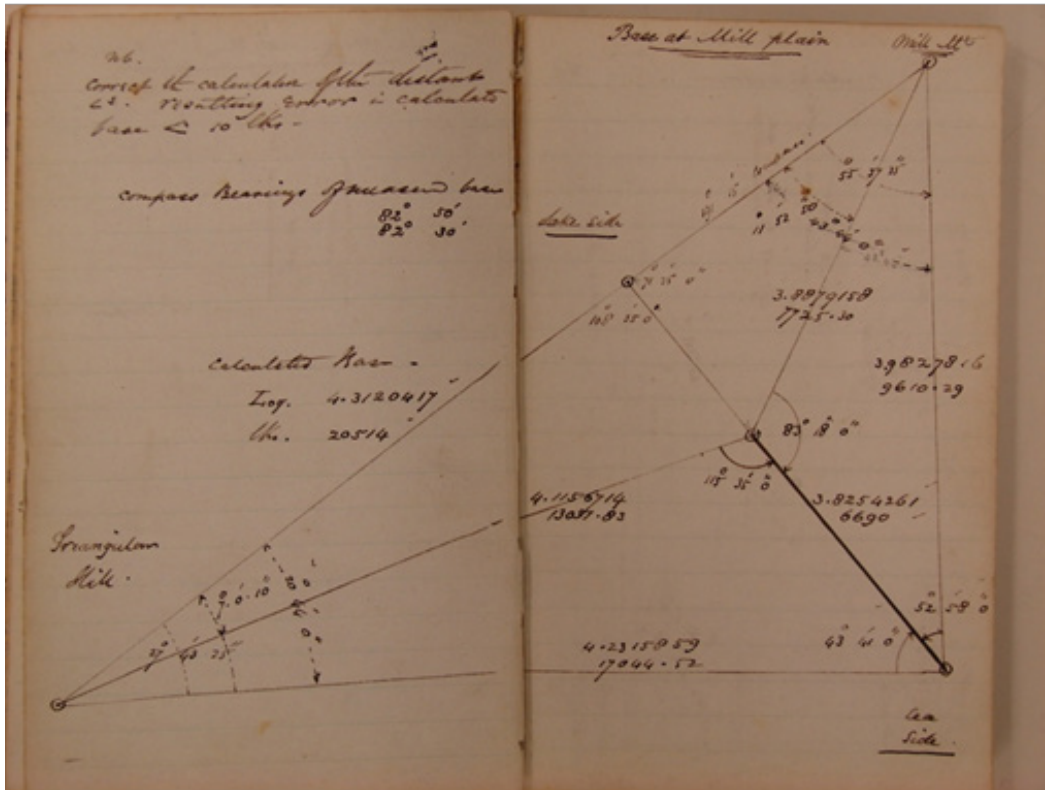 correct the calculation of the distant
resulting error in calculate
base < 10 lks -
compass Bearings of measured base
82° 50'
82° 30'
Calculated Base -
Log. 4.3120417
lks. 20514
Triangular
Hill.
7° 0' 10"
27° 43' 25"
Base at Mill plain
Mill Mt
55° 37' 15"
Lake side
11° 52' 50"
43° 44' 0"
71° 25' 0"
108° 35' 0"
3.8879158
7725.30
3.9827816
9610.29
83° 18' 0"
115° 35' 0"
4.1156714
13037.83
3.8254261
6690
52° 58' 0"
43° 41' 0"
4.2315859
17044.52
Sea
Side.